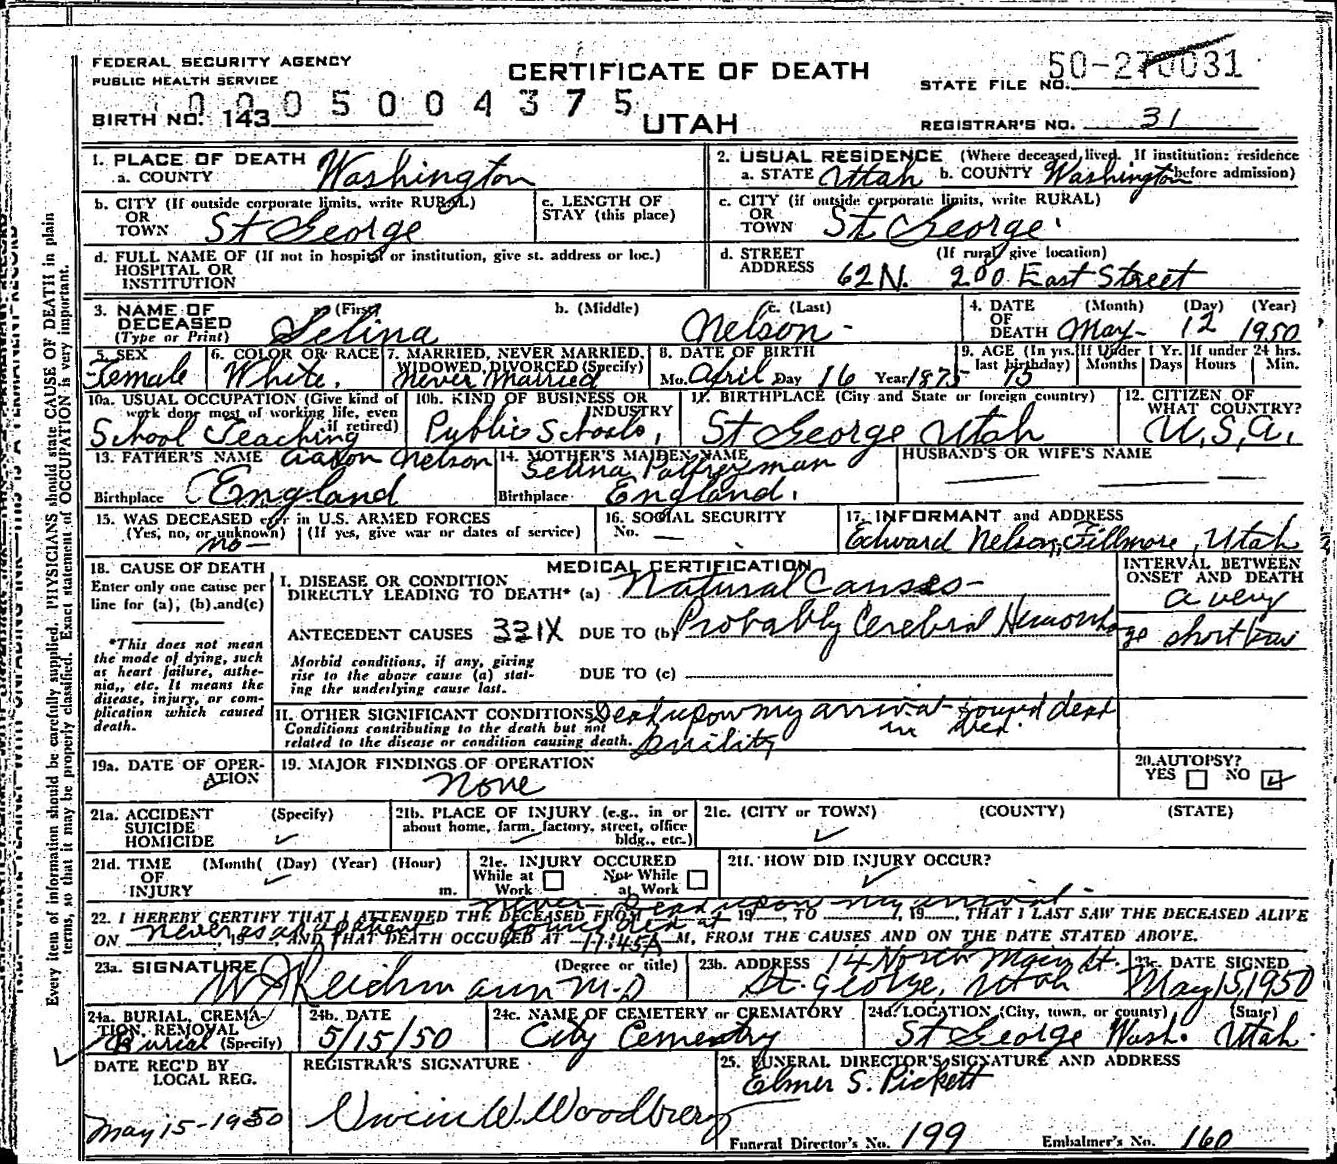 FEDERAL SECURITY AGENCY
PUBLIC HEALTH SERVICE
CERTIFICATE OF DEATH
STATE FILE NO. 50-270031
0005004375
BIRTH NO. 143
UTAH
REGISTRAR'S NO. 31
1. PLACE OF DEATH
a. COUNTY Washington
2. USUAL RESIDENCE (Where deceased lived. If institution: residence before admission)
a. STATE Utah b. COUNTY Washington
b. CITY (If outside corporate limits, write RURAL) OR TOWN St George
c. LENGTH OF STAY (this place)
c. CITY (if outside corporate limits, write RURAL) OR TOWN St George.
d. FULL NAME OF (If not in hospital or institution, give st. address or loc.) HOSPITAL OR INSTITUTION
d. STREET ADDRESS (If rural give location) 62 N. 200 East Street
3. NAME OF DECEASED (Type or Print)
a. (First) Selina b. (Middle) c. (Last) Nelson -
4. DATE OF DEATH (Month) (Day) (Year) May - 12 1950
5. SEX Female
6. COLOR OR RACE White.
7. MARRIED, NEVER MARRIED, WIDOWED, DIVORCED (Specify) Never Married
8. DATE OF BIRTH Mo. April Day 16 Year 1875-
9. AGE (In yrs. last birthday) 75 If Under 1 Yr. Months Days If under 24 hrs. Hours Min.
10a. USUAL OCCUPATION (Give kind of work done most of working life, even if retired) School Teaching
10b. KIND OF BUSINESS OR INDUSTRY Public Schools,
11. BIRTHPLACE (City and State or foreign country) St George Utah
12. CITIZEN OF WHAT COUNTRY? U.S.A.
13. FATHER'S NAME Aaron Nelson
Birthplace England
14. MOTHER'S MAIDEN NAME Selina Palfreyman
Birthplace England.
HUSBAND'S OR WIFE'S NAME
15. WAS DECEASED ever in U.S. ARMED FORCES
(Yes, no, or unknown) (If yes, give war or dates of service) no -
16. SOCIAL SECURITY
No. —
17. INFORMANT and ADDRESS
Edward Nelson, Fillmore, Utah
18. CAUSE OF DEATH
Enter only one cause per line for (a), (b), and (c)
*This does not mean the mode of dying, such as heart failure, asthenia, etc. It means the disease, injury, or complication which caused death.
MEDICAL CERTIFICATION
I. DISEASE OR CONDITION DIRECTLY LEADING TO DEATH* (a) Natural Causes -
ANTECEDENT CAUSES 331X DUE TO (b) Probably Cerebral Hemorrhage
Morbid conditions, if any, giving rise to the above cause (a) stating the underlying cause last.
DUE TO (c)
INTERVAL BETWEEN ONSET AND DEATH
a very
short
II. OTHER SIGNIFICANT CONDITIONS
Conditions contributing to the death but not related to the disease or condition causing death.
Dead upon my arrival - found dead
in bed.
Senility
19a. DATE OF OPERATION
19. MAJOR FINDINGS OF OPERATION
None
20. AUTOPSY?
YES NO ✓
21a. ACCIDENT SUICIDE HOMICIDE (Specify)
21b. PLACE OF INJURY (e.g., in or about home, farm, factory, street, office bldg., etc.)
21c. (CITY or TOWN) (COUNTY) (STATE)
21d. TIME OF INJURY (Month) (Day) (Year) (Hour) m.
21e. INJURY OCCURED
While at Work Not While at Work
21f. HOW DID INJURY OCCUR?
never - Dead upon my arrival -
22. I HEREBY CERTIFY THAT I ATTENDED THE DECEASED FROM 19, TO , 19, THAT I LAST SAW THE DECEASED ALIVE
never as a patient found dead at
ON , 19, AND THAT DEATH OCCURED AT 11:45 A M, FROM THE CAUSES AND ON THE DATE STATED ABOVE.
23a. SIGNATURE (Degree or title)
W J Reichmann M.D
23b. ADDRESS 14 North Main St.
St. George, Utah
23c. DATE SIGNED
May 15, 1950
24a. BURIAL, CREMATION, REMOVAL (Specify) Burial
24b. DATE
5/15/50
24c. NAME OF CEMETERY or CREMATORY
City Cemetery
24d. LOCATION (City, town, or county) (State)
St George Wash. Utah.
DATE REC'D BY LOCAL REG.
May 15 - 1950
REGISTRAR'S SIGNATURE
W. Woodbury
25. FUNERAL DIRECTOR'S SIGNATURE AND ADDRESS
Elmer S. Pickett
Funeral Director's No. 199 Embalmer's No. 160
Every item of information should be carefully supplied. PHYSICIANS should state CAUSE OF DEATH in plain
terms, so that it may be properly classified. Exact statement of OCCUPATION is very important.